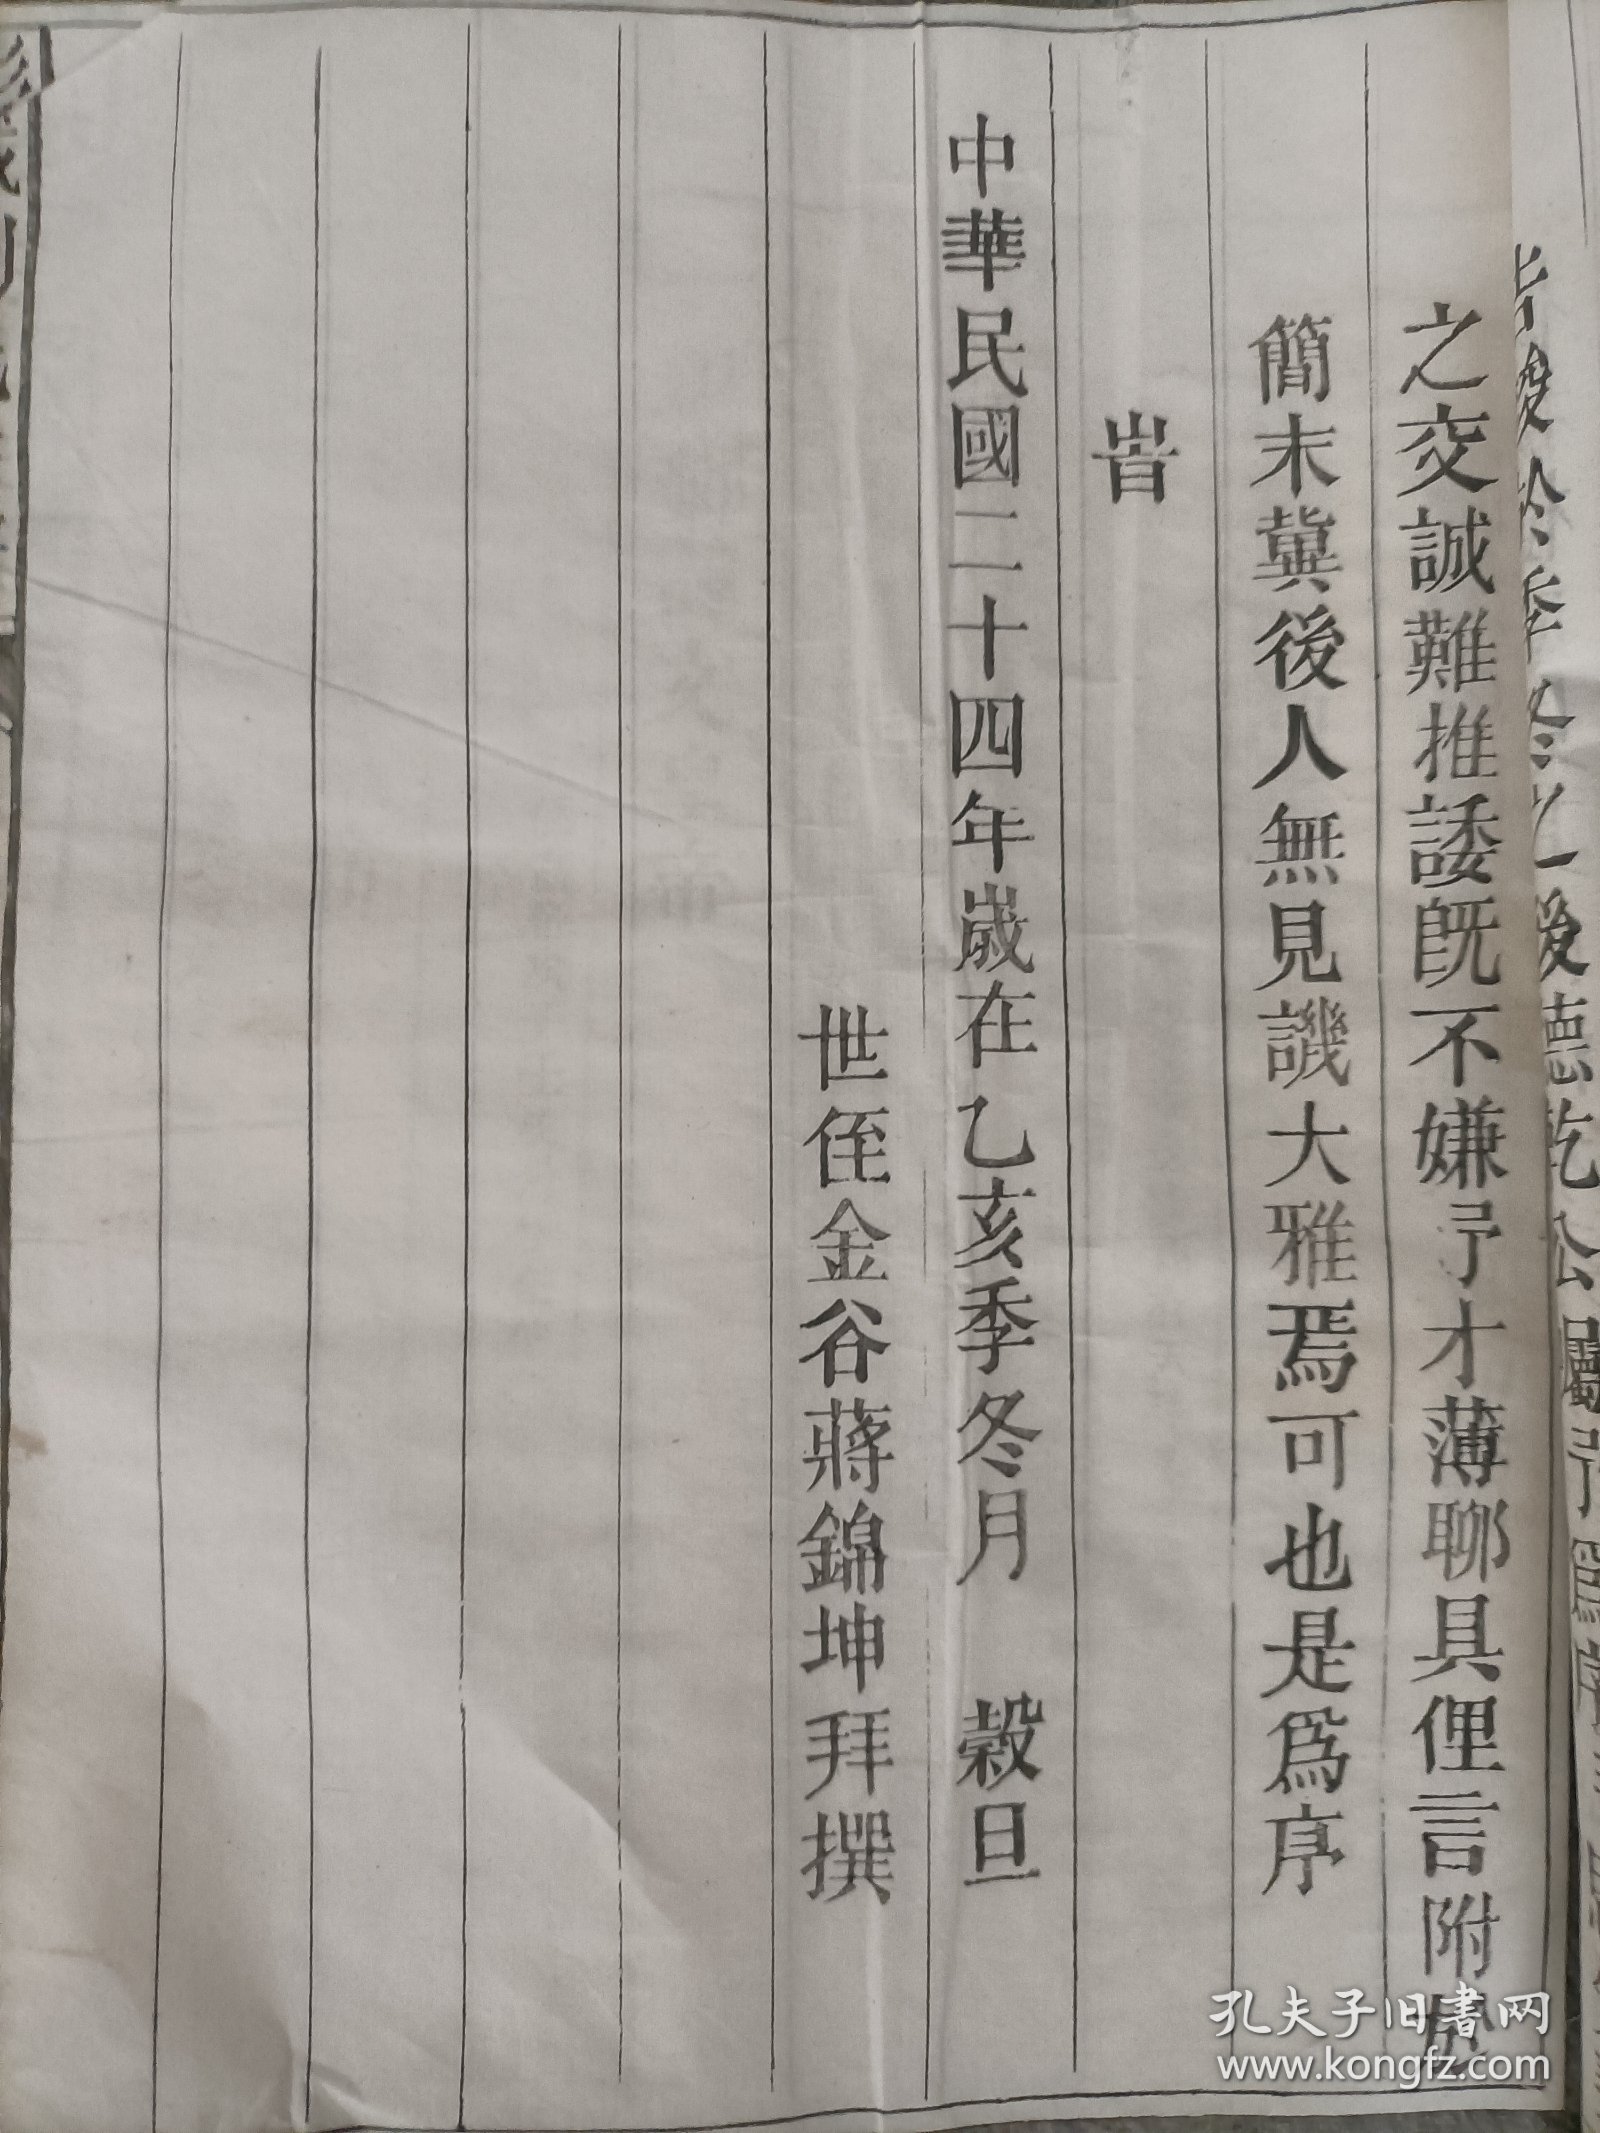 之交誠難推諉旣不嫌予才薄聊具俚言附於
簡末冀後人無見譏大雅焉可也是爲序
旹
中華民國二十四年歲在乙亥季冬月 穀旦
世侄金谷蔣錦坤拜撰
孔夫子旧書网
www.kongfz.com